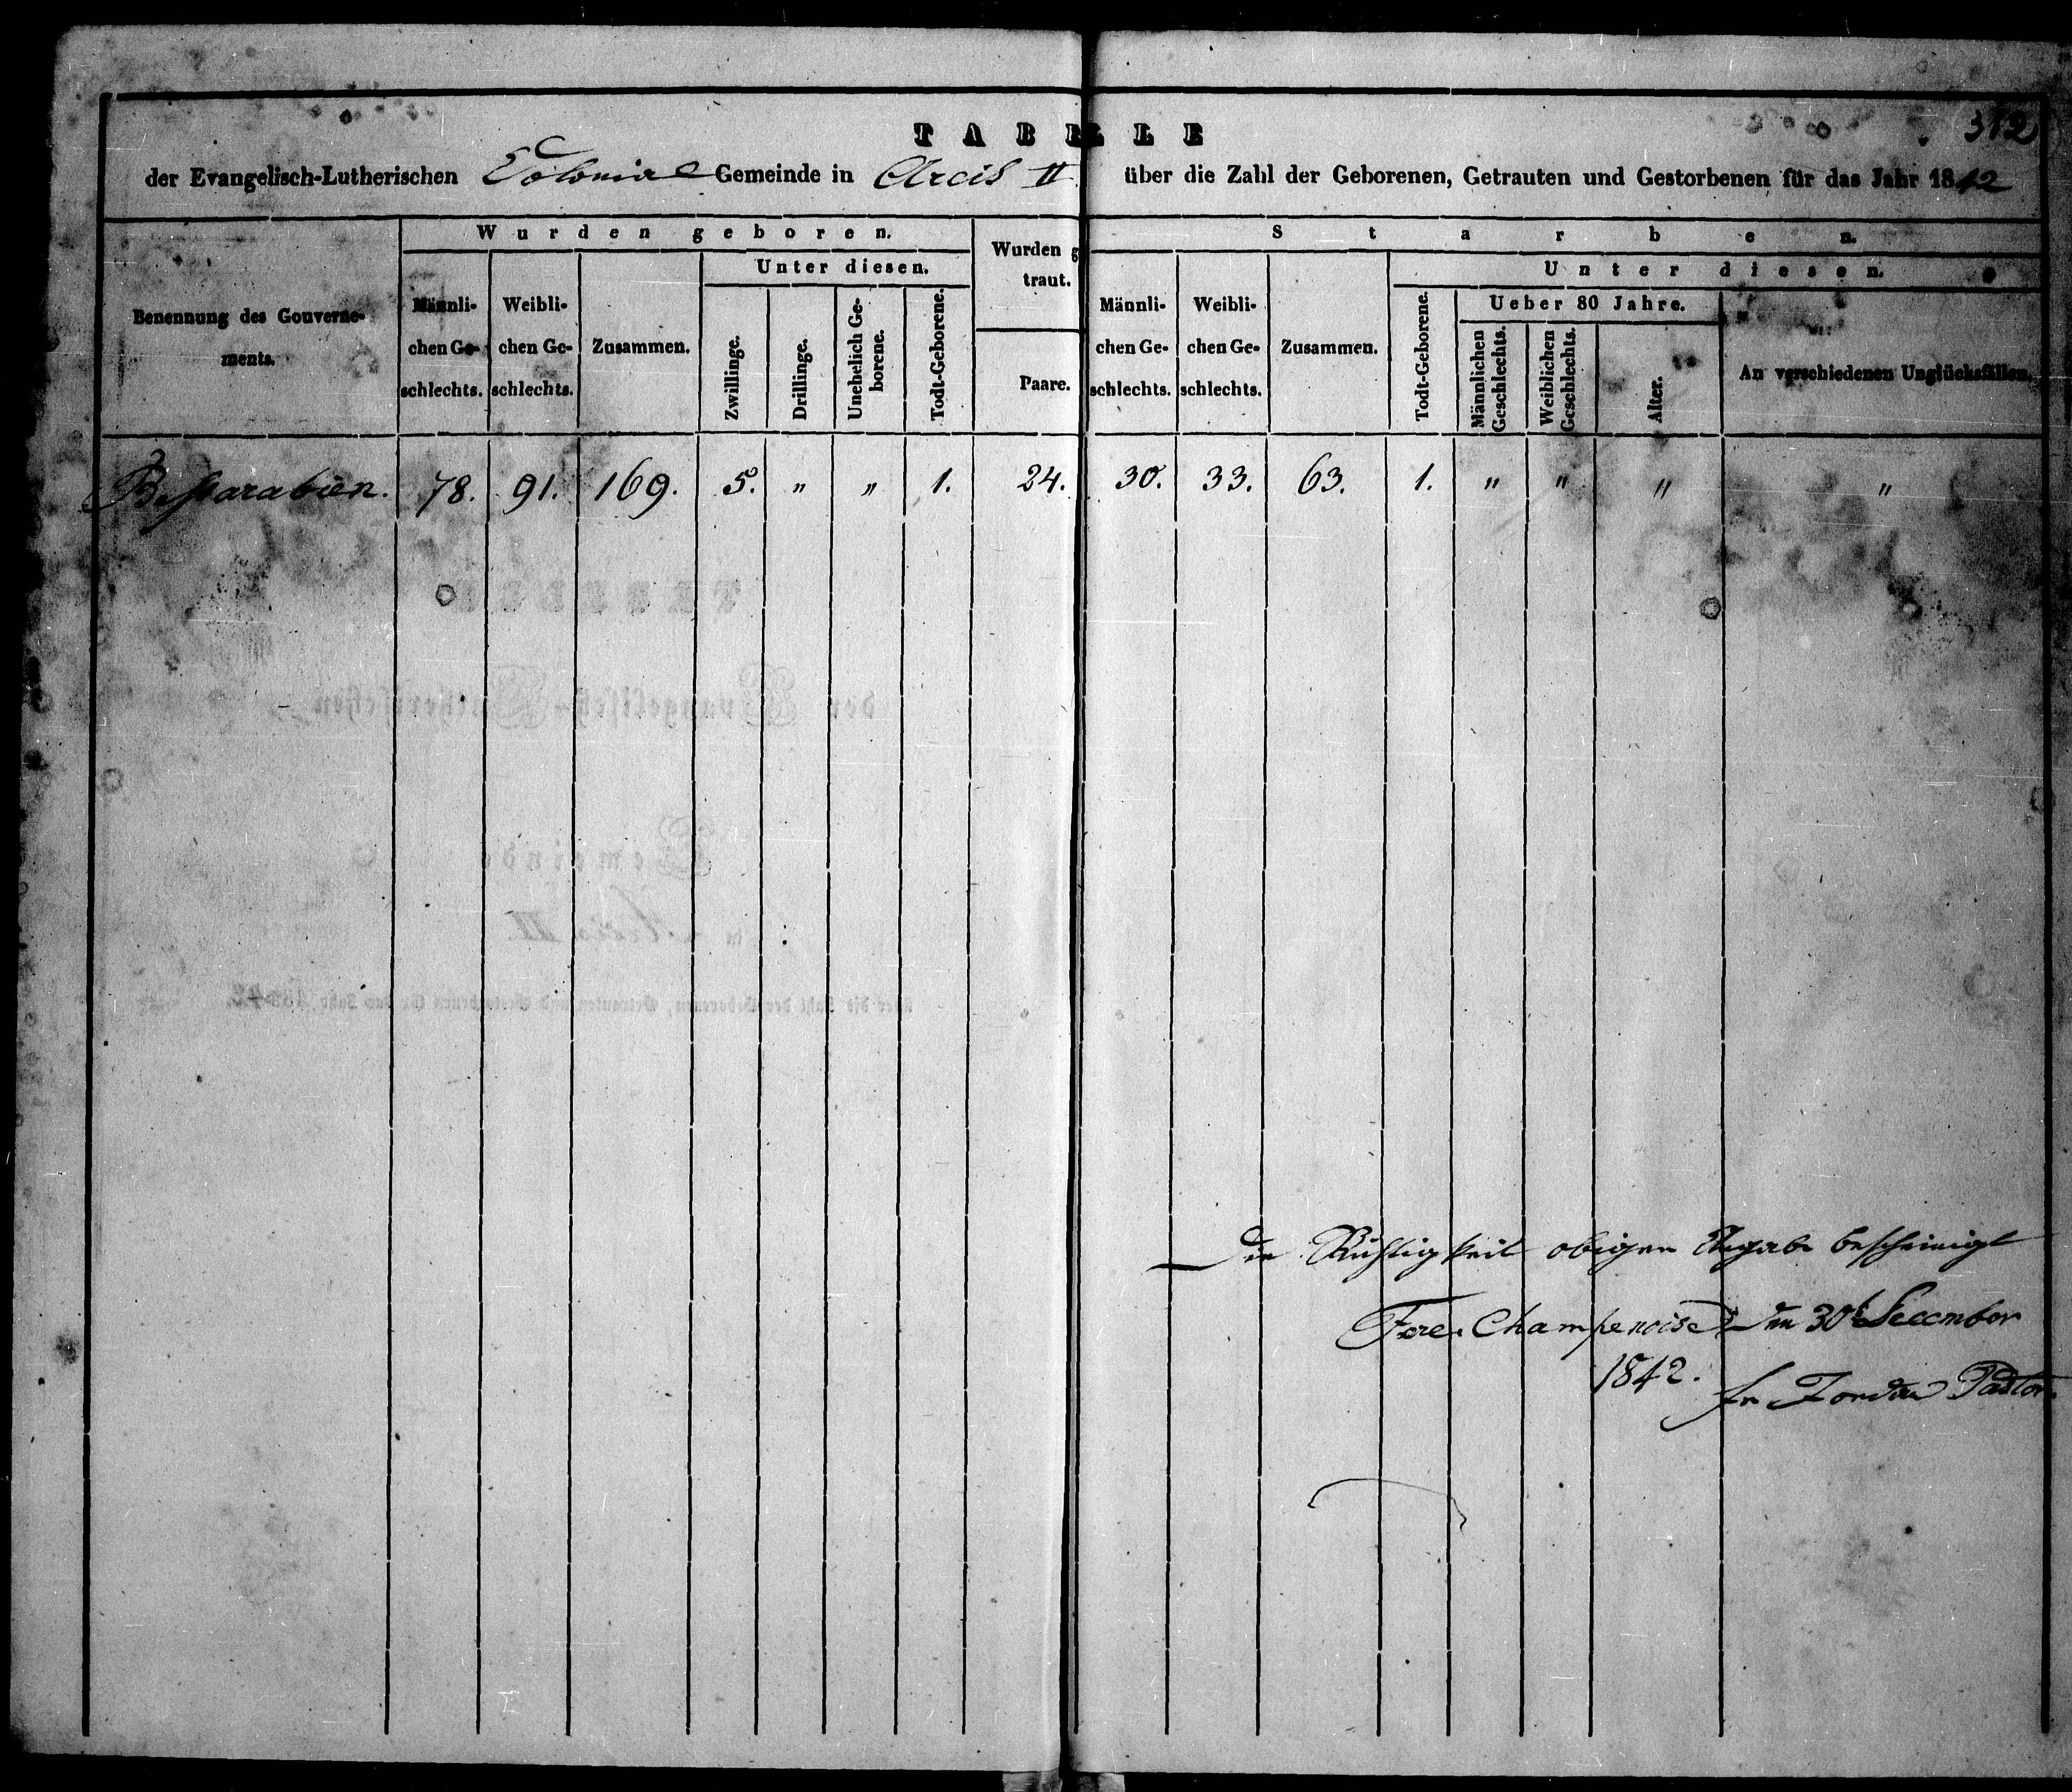 312
TABELLE
der Evangelisch-Lutherischen Colonial Gemeinde in Arcis II über die Zahl der Geborenen, Getrauten und Gestorbenen für das Jahr 1842
Benennung des Gouvernements.
Wurden geboren.
Männlichen Geschlechts.
Weiblichen Geschlechts.
Zusammen.
Unter diesen.
Zwillinge.
Drillinge.
Unehelich Geborene.
Todt-Geborene.
Wurden g
traut.
Paare.
Starben.
Männlichen Geschlechts.
Weiblichen Geschlechts.
Zusammen.
Unter diesen.
Todt-Geborene.
Ueber 80 Jahre.
Männlichen Geschlechts.
Weiblichen Geschlechts.
Alter.
An verschiedenen Unglücksfällen.
Bessarabien. 78. 91. 169. 5. " " 1. 24. 30. 33. 63. 1. " " " "
Die Richtigkeit obiger Angabe bescheinigt
Fere-Champenoise den 30t December
1842.
Fr Jordan Pastor.